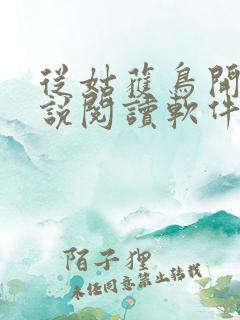 從姑獲鳥開
說閱讀軟件
陌子狸
未经同意禁止转载